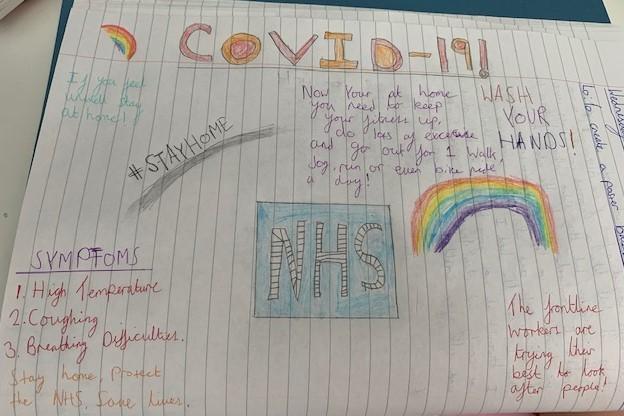 COVID-19!
If you feel
unwell stay
at home!
#STAYHOME
Now your at home
you need to keep
your fitness up,
do lots of excersise
and go out for 1 walk,
jog, run or even bike ride
a day!
WASH
YOUR
HANDS!
Wednesday
to create a poster
NHS
SYMPTOMS
1. High Temperature
2. Coughing
3. Breathing Difficulties.
Stay home, Protect
the NHS, Save lives.
The frontline
workers are
trying their
best to look
after people!